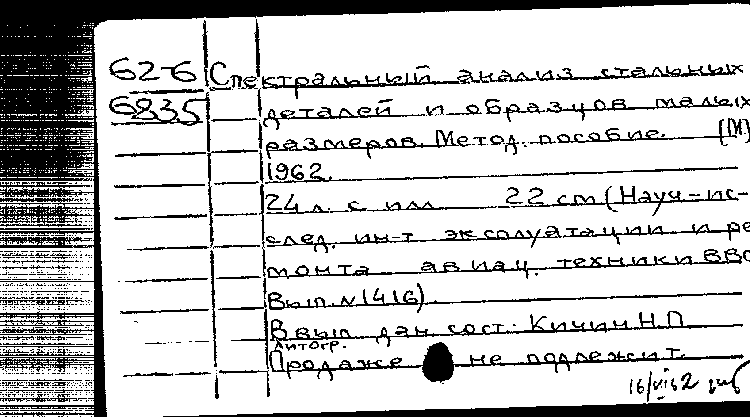 62-6 Спектральный анализ стальных
6835 деталей и образцов малых
размеров. Метод. пособие. [М]
1962.
24 л. с илл 22 cm (Науч-ис-
след. ин-т эксплуатации и ре
монта авиац. техники ВВС
Вып. N 1416).
В вып. дан сост.: Кичин Н.П.
Литогр.
Продаже не подлежит.
16/VII 62